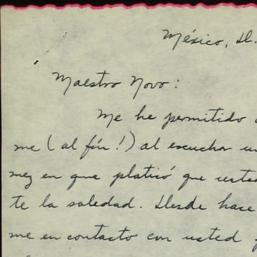 México, D.
Maestro Novo:
Me he permitido
me (al fín!) al escuchar un
mez en que platicó que usted
te la soledad. Desde hace
me en contacto con usted